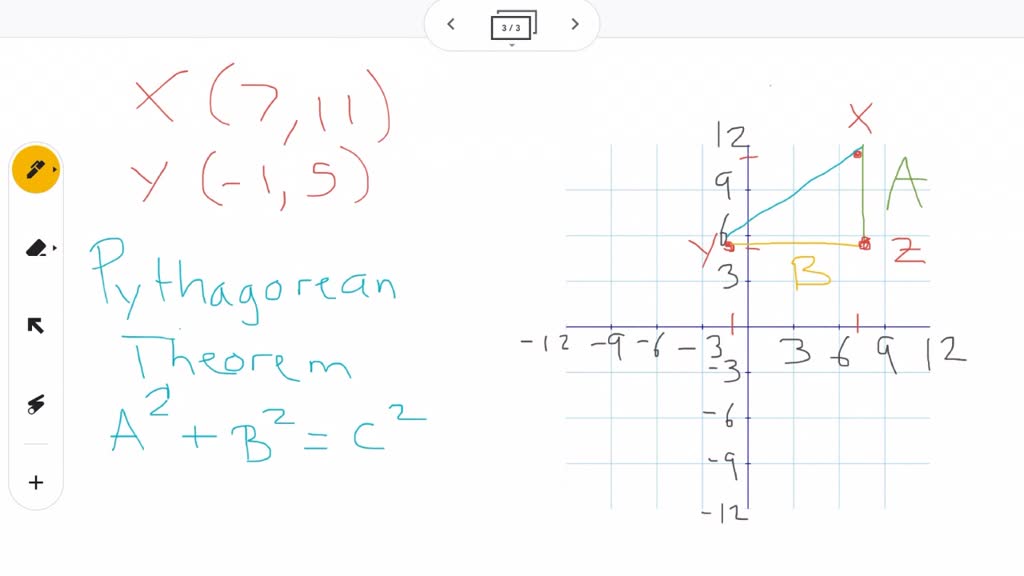 3 / 3
X (7, 11)
Y (-1, 5)
Pythagorean
Theorem
A² + B² = C²
X
12
9
A
6
Y
Z
3
B
-12 -9 -6 -3 3 6 9 12
-3
-6
-9
-12